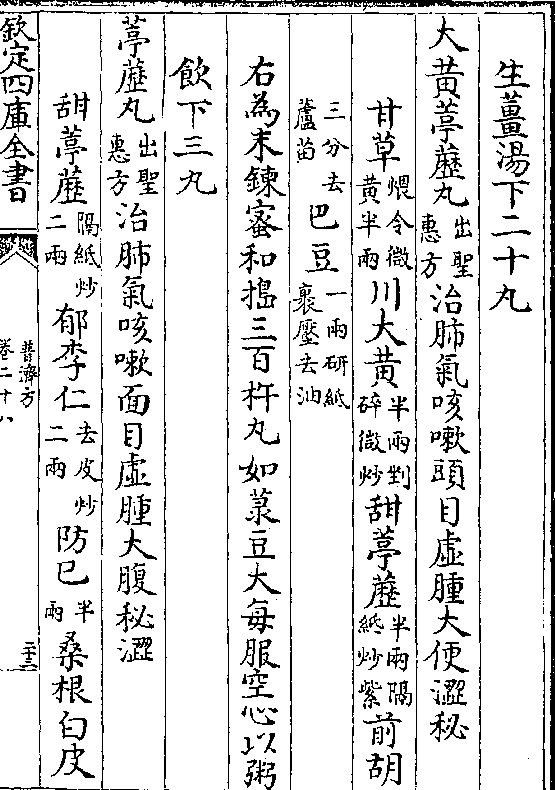 生薑湯下二十丸
大黃葶藶丸出聖惠方治肺氣咳嗽頭目虛腫大便澀秘
甘草煨令微黃半兩川大黃半兩剉碎微炒甜葶藶半兩隔紙炒紫前胡
三分去蘆苗巴豆一兩研紙裹壓去油
右為末鍊蜜和搗三百杵丸如菉豆大每服空心以粥
飲下三丸
葶藶丸出聖惠方治肺氣咳嗽面目虛腫大腹秘澀
甜葶藶隔紙炒二兩郁李仁去皮炒二兩防巳半兩桑根白皮
欽定四庫全書
普濟方
卷二十八
二十三